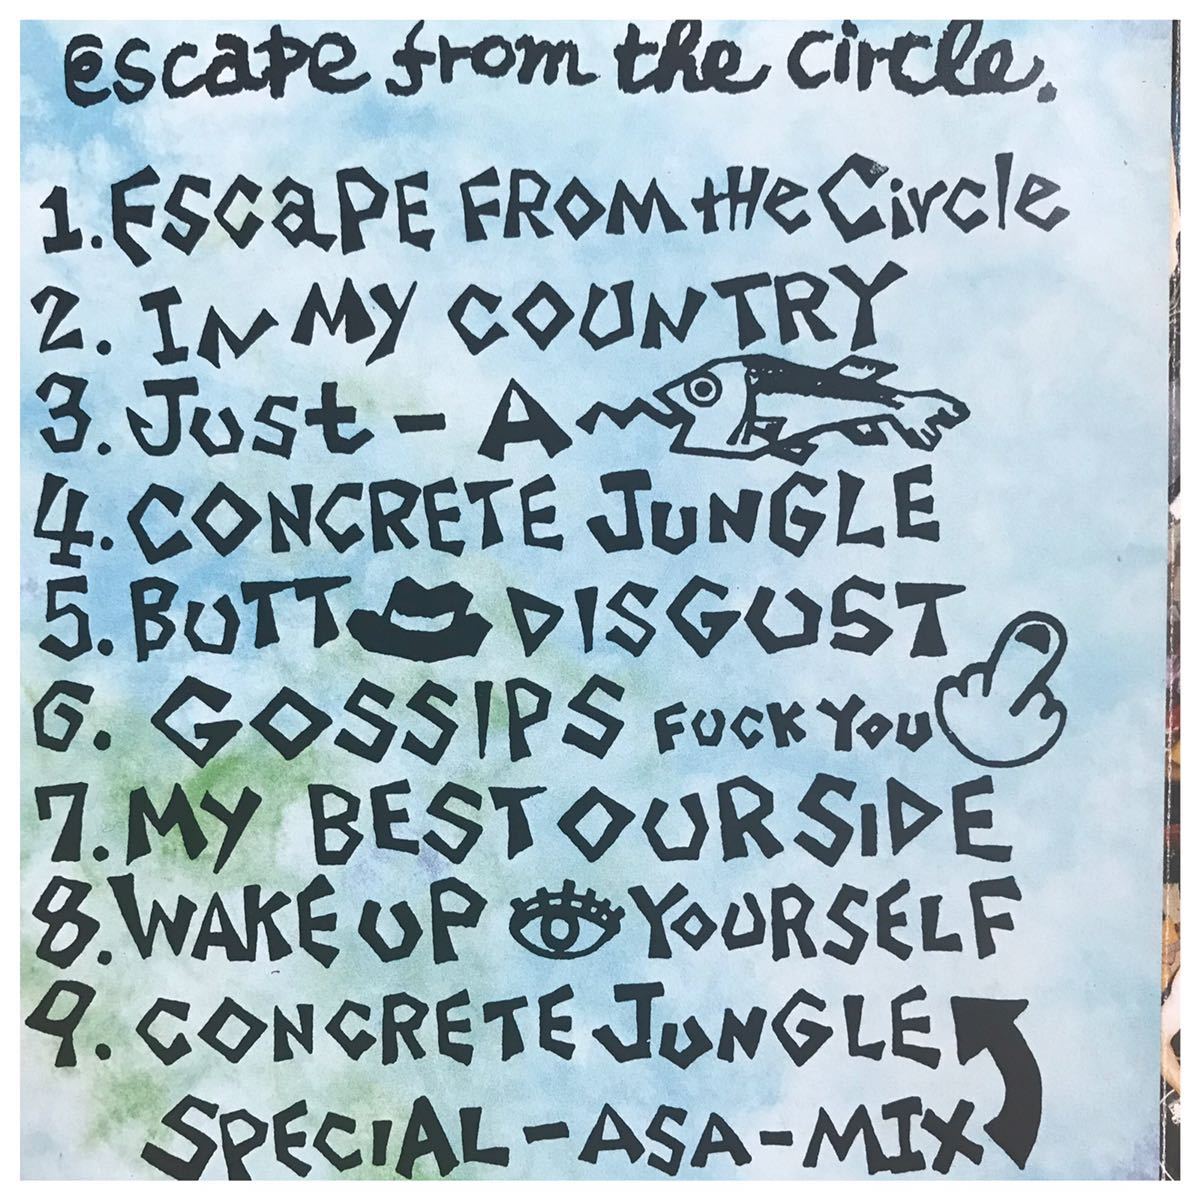 escape from the circle.
1. ESCAPE FROM tHe Circle
2. IN MY COUNTRY
3. Just - A
4. CONCRETE JUNGLE
5. BUTT DISGUST
6. GOSSIPS FUCK YOU
7. MY BEST OURSIDE
8. WAKE UP YOURSELF
9. CONCRETE JUNGLE
SPECiAL-ASA-MIX